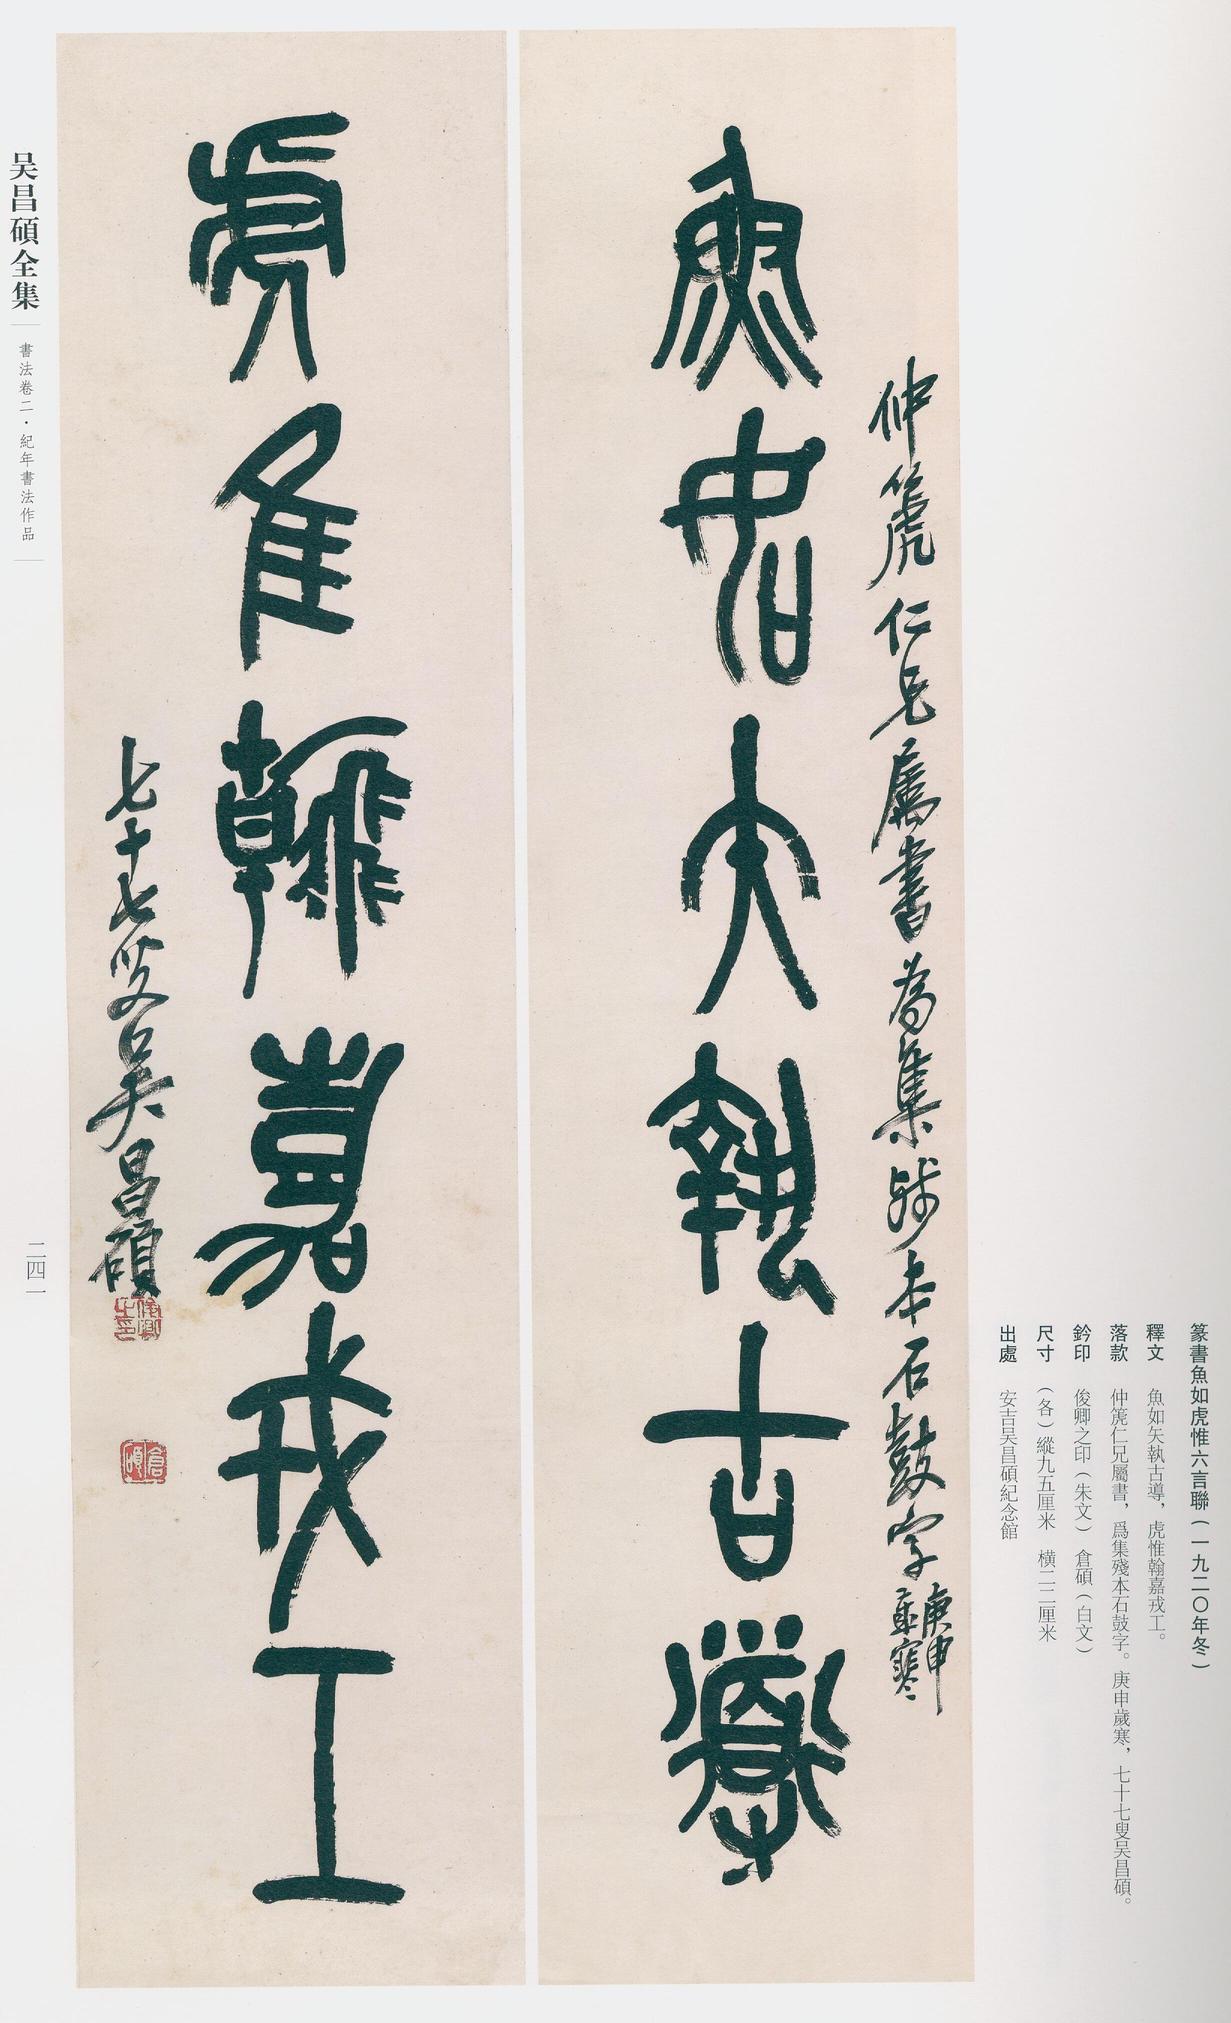 篆書魚如虎惟六言聯（一九二〇年冬）
釋文　魚如矢執古導，虎惟翰嘉戎工。
落款　仲箎仁兄屬書，爲集殘本石鼓字。庚申歲寒，七十七叟吴昌碩。
鈐印　俊卿之印（朱文）　倉碩（白文）
尺寸　（各）縱九五厘米　橫二二厘米
出處　安吉吴昌碩紀念館
仲箎仁兄屬書為集殘本石鼓字
庚申
歲寒
魚如矢執古導
虎隹翰嘉戎工
七十七叟吴昌碩
俊卿之印
倉碩
吴昌碩全集
書法卷二·紀年書法作品
二四一